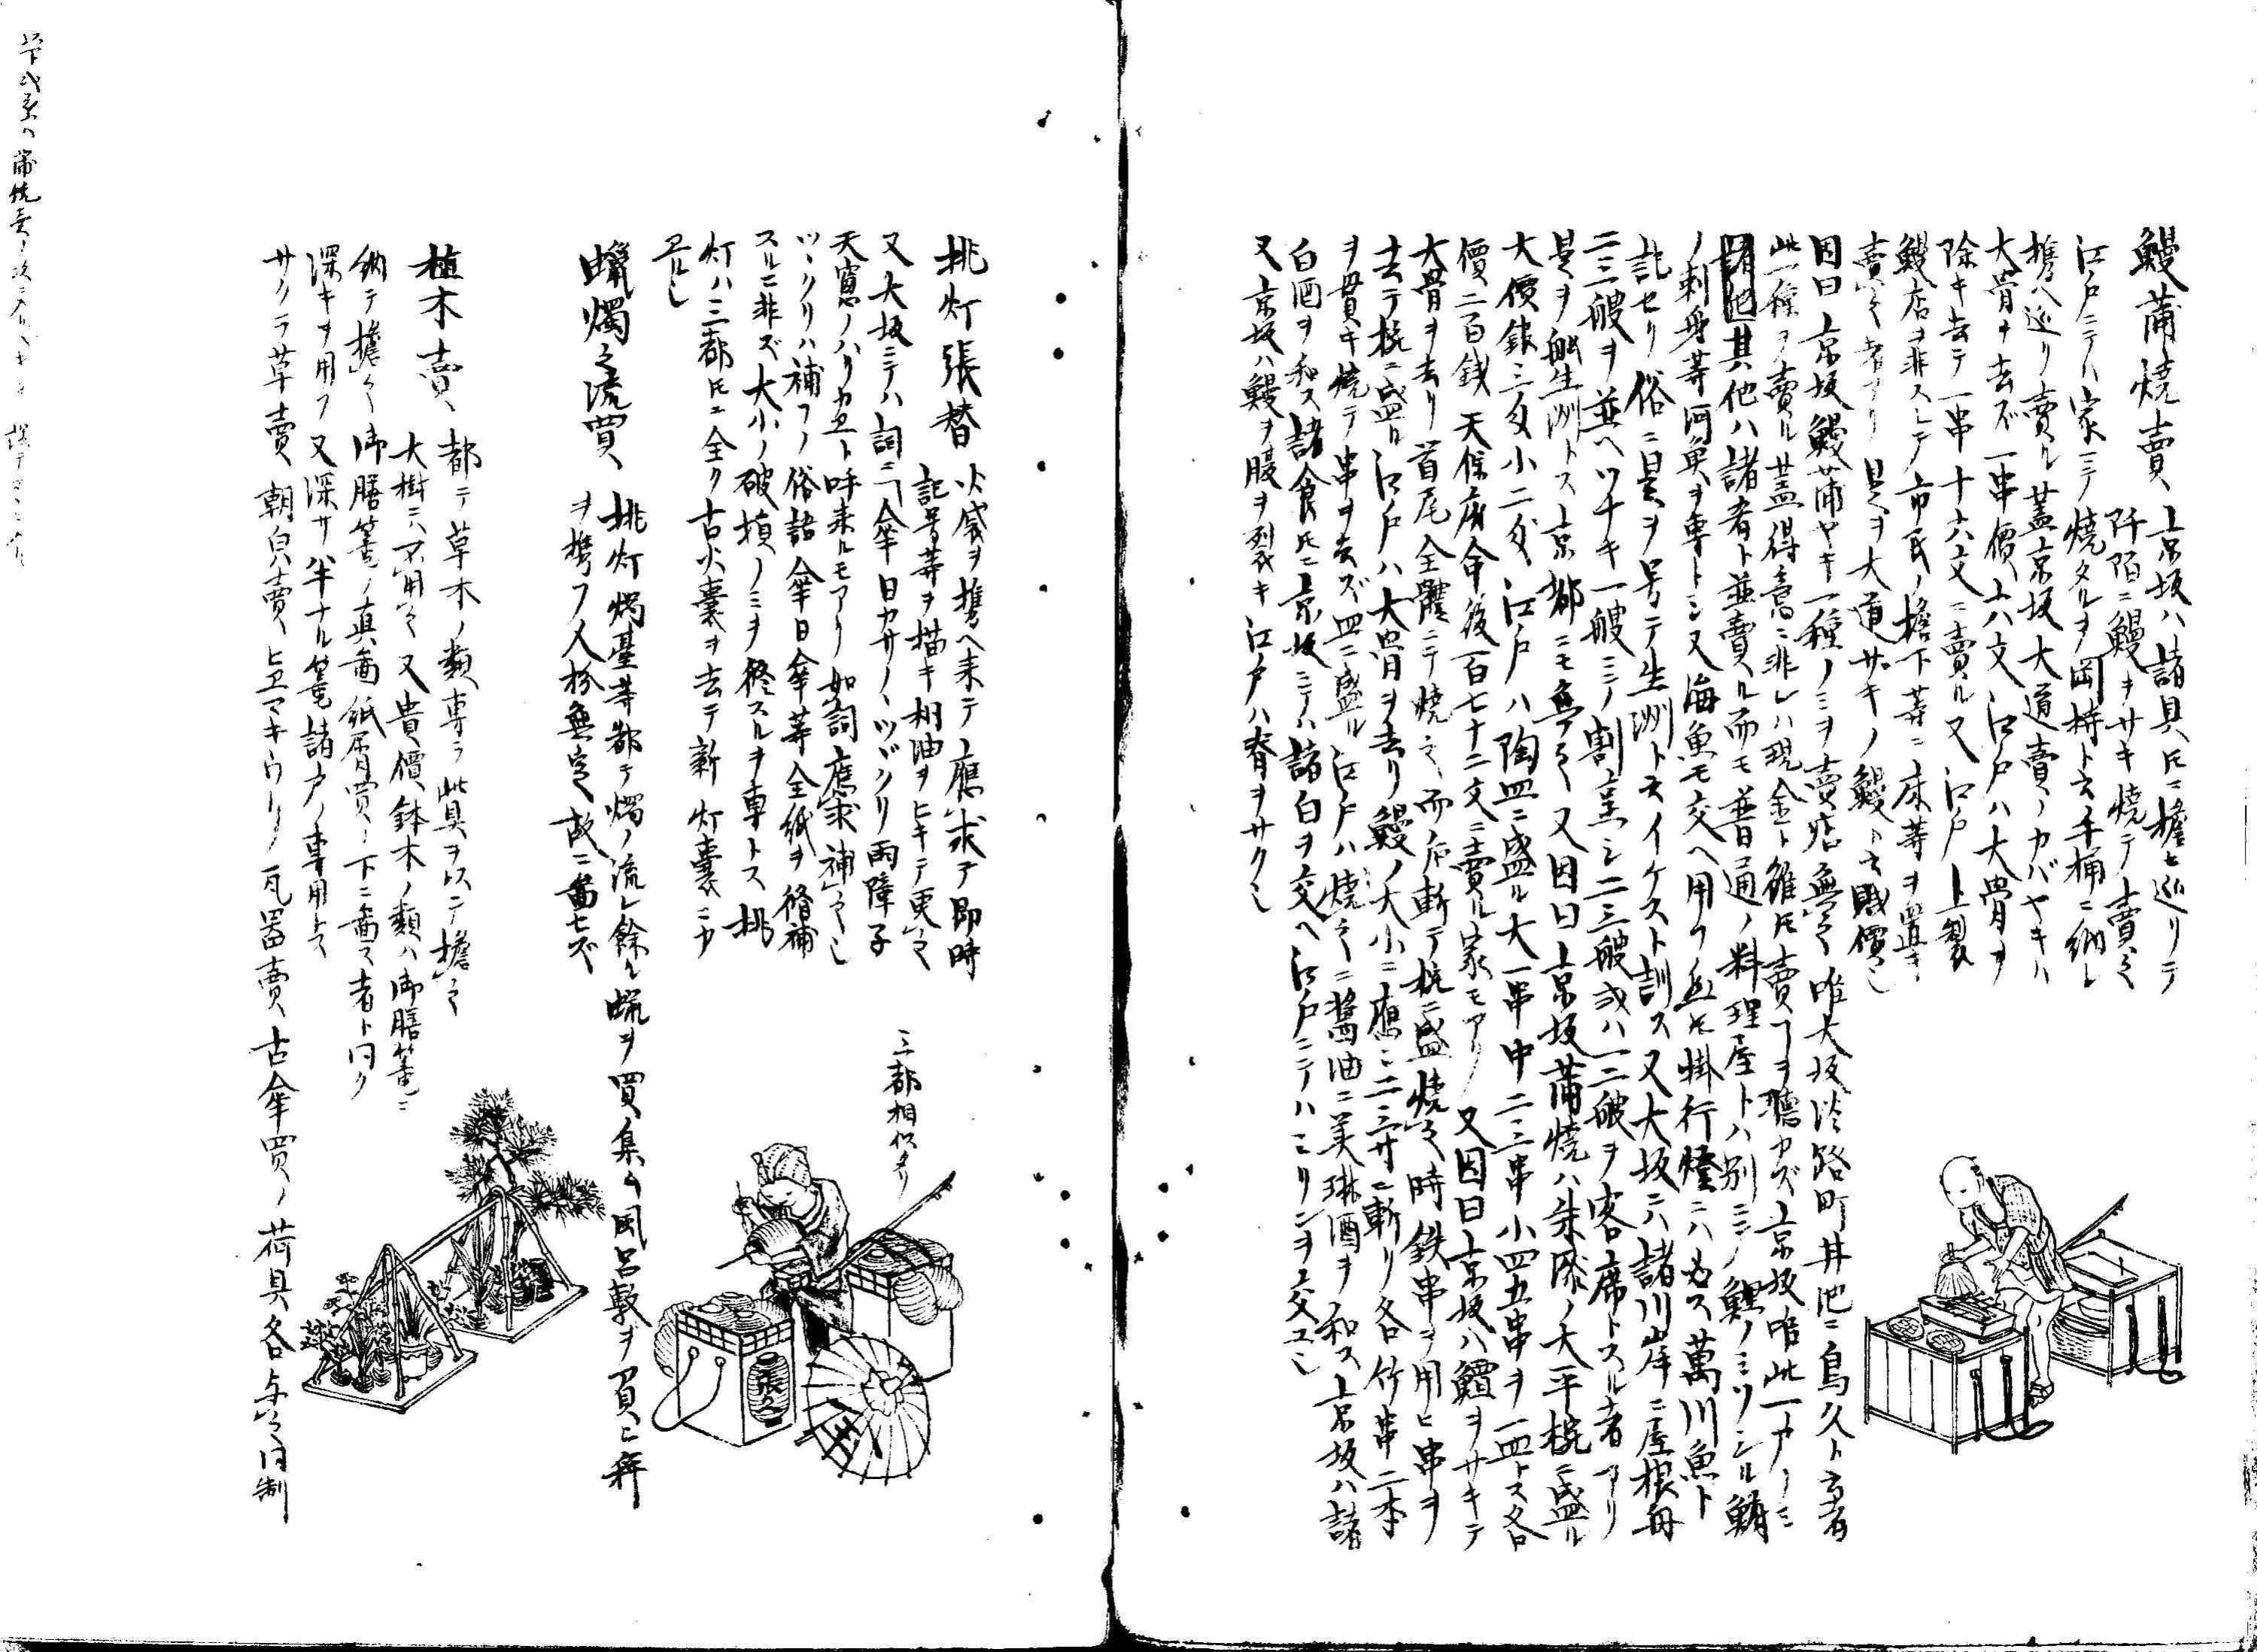 鰻蒲焼賣 京坂ハ諸具𪜈ニ擔ヒ巡リテ
阡陌ニ鰻ヲサキ焼テ賣之
江戸ニテハ家ニテ焼タルヲ岡持ト云手桶ニ納レ
携ヘ巡リ賣ル蓋京坂大道賣ノカバヤキハ
大骨ヲ去ズ一串價六文江戸ハ大骨ヲ
除キ去テ一串十六文ニ賣ル又江戸上製
鰻店ヲ非スレテ市民ノ檐下等ニ床等ヲ置キ
賣之者アリ是ヲ大道ザキノ鰻ト云賤價也
因曰京坂鰻蒲ヤキ一種ノミヲ賣店無之唯大坂淡路町丼池ニ鳥久ト云者
此一種ヲ賣ル蓋得意ニ非レハ現金ト雖𪜈賣ヿヲ聴カズ京坂唯此一戸ノミ
其他ハ諸肴ト並賣ル而モ普通ノ料理屋トハ別ニシ鯉ノミソシル鮒
ノ刺身等河魚ヲ専トシ又海魚モ交ヘ用フ然𪜈掛行燈ニハ必ス萬川魚ト
記セリ俗ニ是ヲ号テ生洲ト云イケスト訓ス又大坂ニハ諸川岸ニ屋根舟
二三艘ヲ並ヘツナキ一艘ニテ割烹シ二三艘或ハ一二艘ヲ客席トスル者アリ
是ヲ舩生洲トス京都ニモ無之又因曰京坂蒲焼ハ朱漆ノ大平椀ニ盛ル
大價銀三匁小二匁江戸ハ陶皿ニ盛ル大一串中二三串小四五串ヲ一皿トス各
價二百銭天保府命後百七十二文ニ賣ル家モアリ又因曰京坂ハ鰻ヲサキテ
大骨ヲ去リ首尾全體ニテ焼之而ノ后斬テ椀ニ盛焼之時鉄串ヲ用ヒ串ヲ
去テ椀ニ盛ル江戸ハ大骨ヲ去リ鰻ノ大小ニ應シ二三寸ニ斬リ各竹串二本
ヲ貫キ焼テ串ヲ去ズ皿ニ盛ル江戸ハ焼之ニ醤油ニ美琳酒ヲ和ス京坂ハ諸
白酒ヲ和ス諸食𪜈ニ京坂ニテハ諸白ヲ交ヘ江戸ニテハミリンヲ交ユ也
又京坂ハ鰻ヲ腹ヲ裂キ江戸ハ脊ヲサク也
挑灯張替 火袋ヲ携ヘ来テ應求テ即時
記号等ヲ描キ桐油ヲヒキテ更之
又大坂ニテハ詞ニ傘日カサノツヾクリ雨障子
天窻ノハリカヱト呼来ルモアリ如詞應求補之也
ツヾクリハ補フノ俗語傘日傘等全紙ヲ脩補
スルニ非ズ大小ノ破損ノミヲ修スルヲ専トス挑
灯ハ三都𪜈ニ全ク古火嚢ヲ去テ新灯嚢ニカ
ヱル也
三都相似タリ
張久
蠟燭之流買 挑灯燭臺等都テ燭ノ流レ餘ル蝋ヲ買集ム風呂敷ヲ負ヒ秤
ヲ携フノ人扮無定故ニ啚セズ
植木賣 都テ草木ノ類専ラ此具ヲ以テ擔之
大樹ニハ不用之又貴價鉢木ノ類ハ御膳籠ニ
納テ擔之御膳籠ノ真啚紙屑買ノ下ニ啚ス者ト同ク
深キヲ用フ又深サ半ナル籠諸戸ノ専用トス
サクラ草賣 朝皃賣 ヒヱマキウリ 瓦器賣 古傘買ノ荷具各与之同制